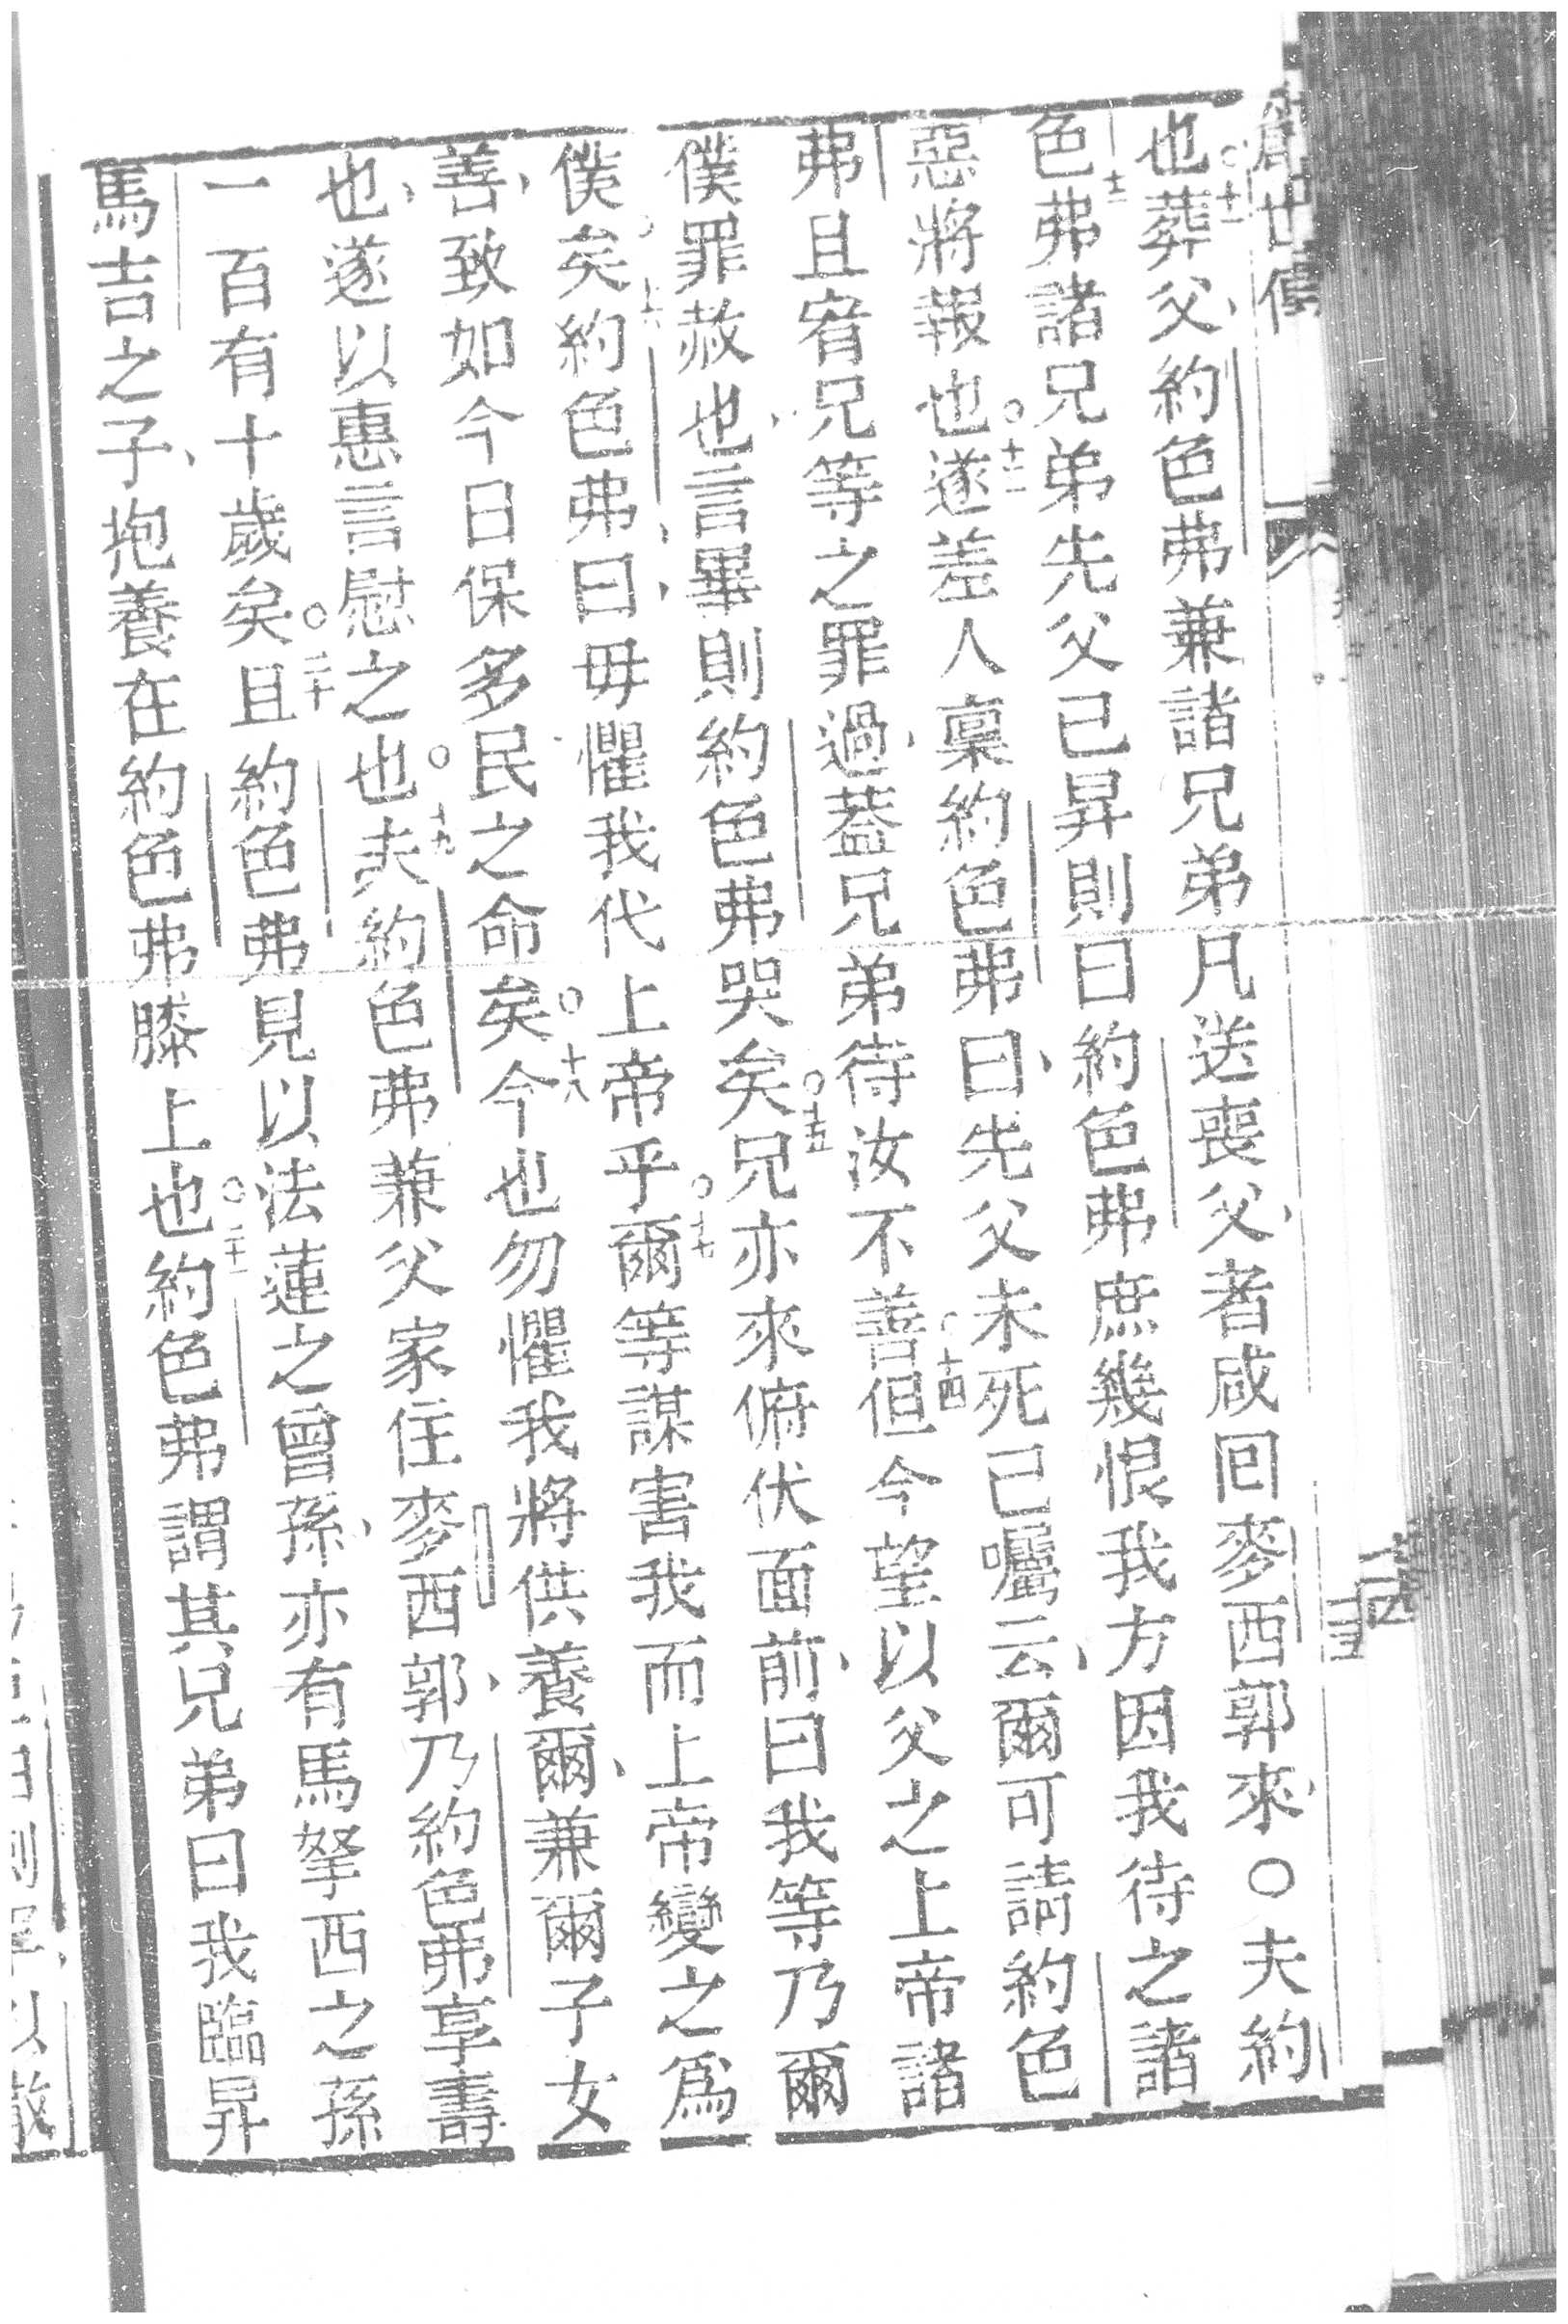 創世傳
也○十一葬父、約色弗兼諸兄弟凡送喪父者咸回麥西郭來、○夫約
色弗十二諸兄弟先父已昇則曰約色弗庶幾恨我方因我待之諸
惡將報也○十三遂差人稟約色弗、曰先父未死已囑云、爾可請約色
弗且宥兄等之罪過、蓋兄弟待汝不善○十四但今望以父之上帝諸
僕罪赦也、言畢則約色弗哭矣○十五兄亦來俯伏面前、曰我等乃爾
僕矣○十六約色弗、曰、毋懼我代上帝乎○十七爾等謀害我而上帝變之爲
善、致如今日保多民之命矣○十八今也勿懼我將供養爾、兼爾子女
也、遂以惠言慰之也○十九夫約色弗兼父家住麥西郭、乃約色弗享壽
一百有十歲矣○二十且約色弗見以法蓮之曾孫、亦有馬拏西之孫
馬吉之子、抱養在約色弗膝上也○二十一約色弗謂其兄弟曰我臨昇